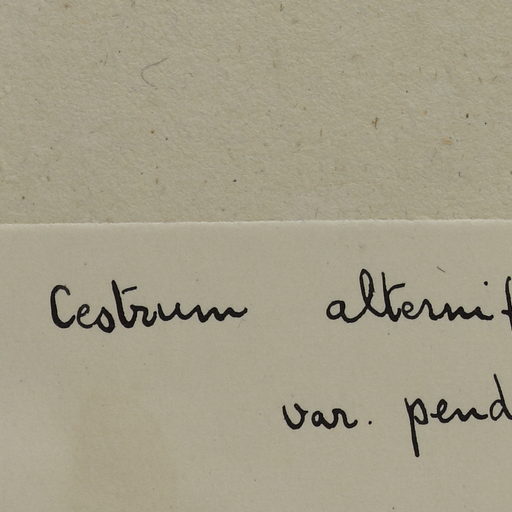 Cestrum alternif
var. pend